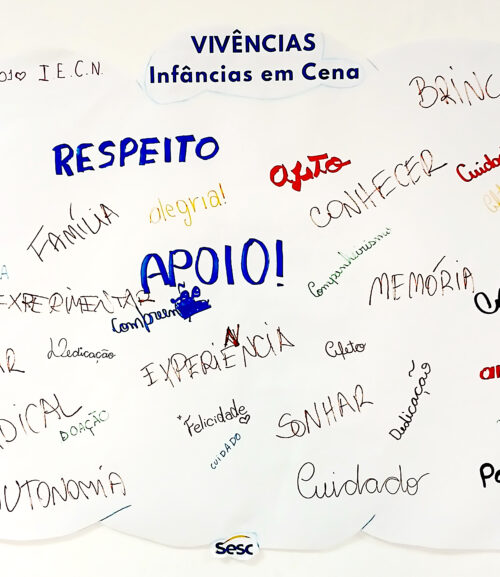 VIVÊNCIAS
Infâncias em Cena
I E.C.N.
BRINC
RESPEITO
afeto
CONHECER
Cuida
FAMÍLIA
alegria!
APOIO!
Companheirismo
MEMÓRIA
EXPERIMENTAR
Compreen
Dedicação
EXPERIÊNCIA
afeto
AR
DICAL
DOAÇÃO
Felicidade
CUIDADO
SONHAR
Dedicação
UTONOMIA
Cuidado
Sesc